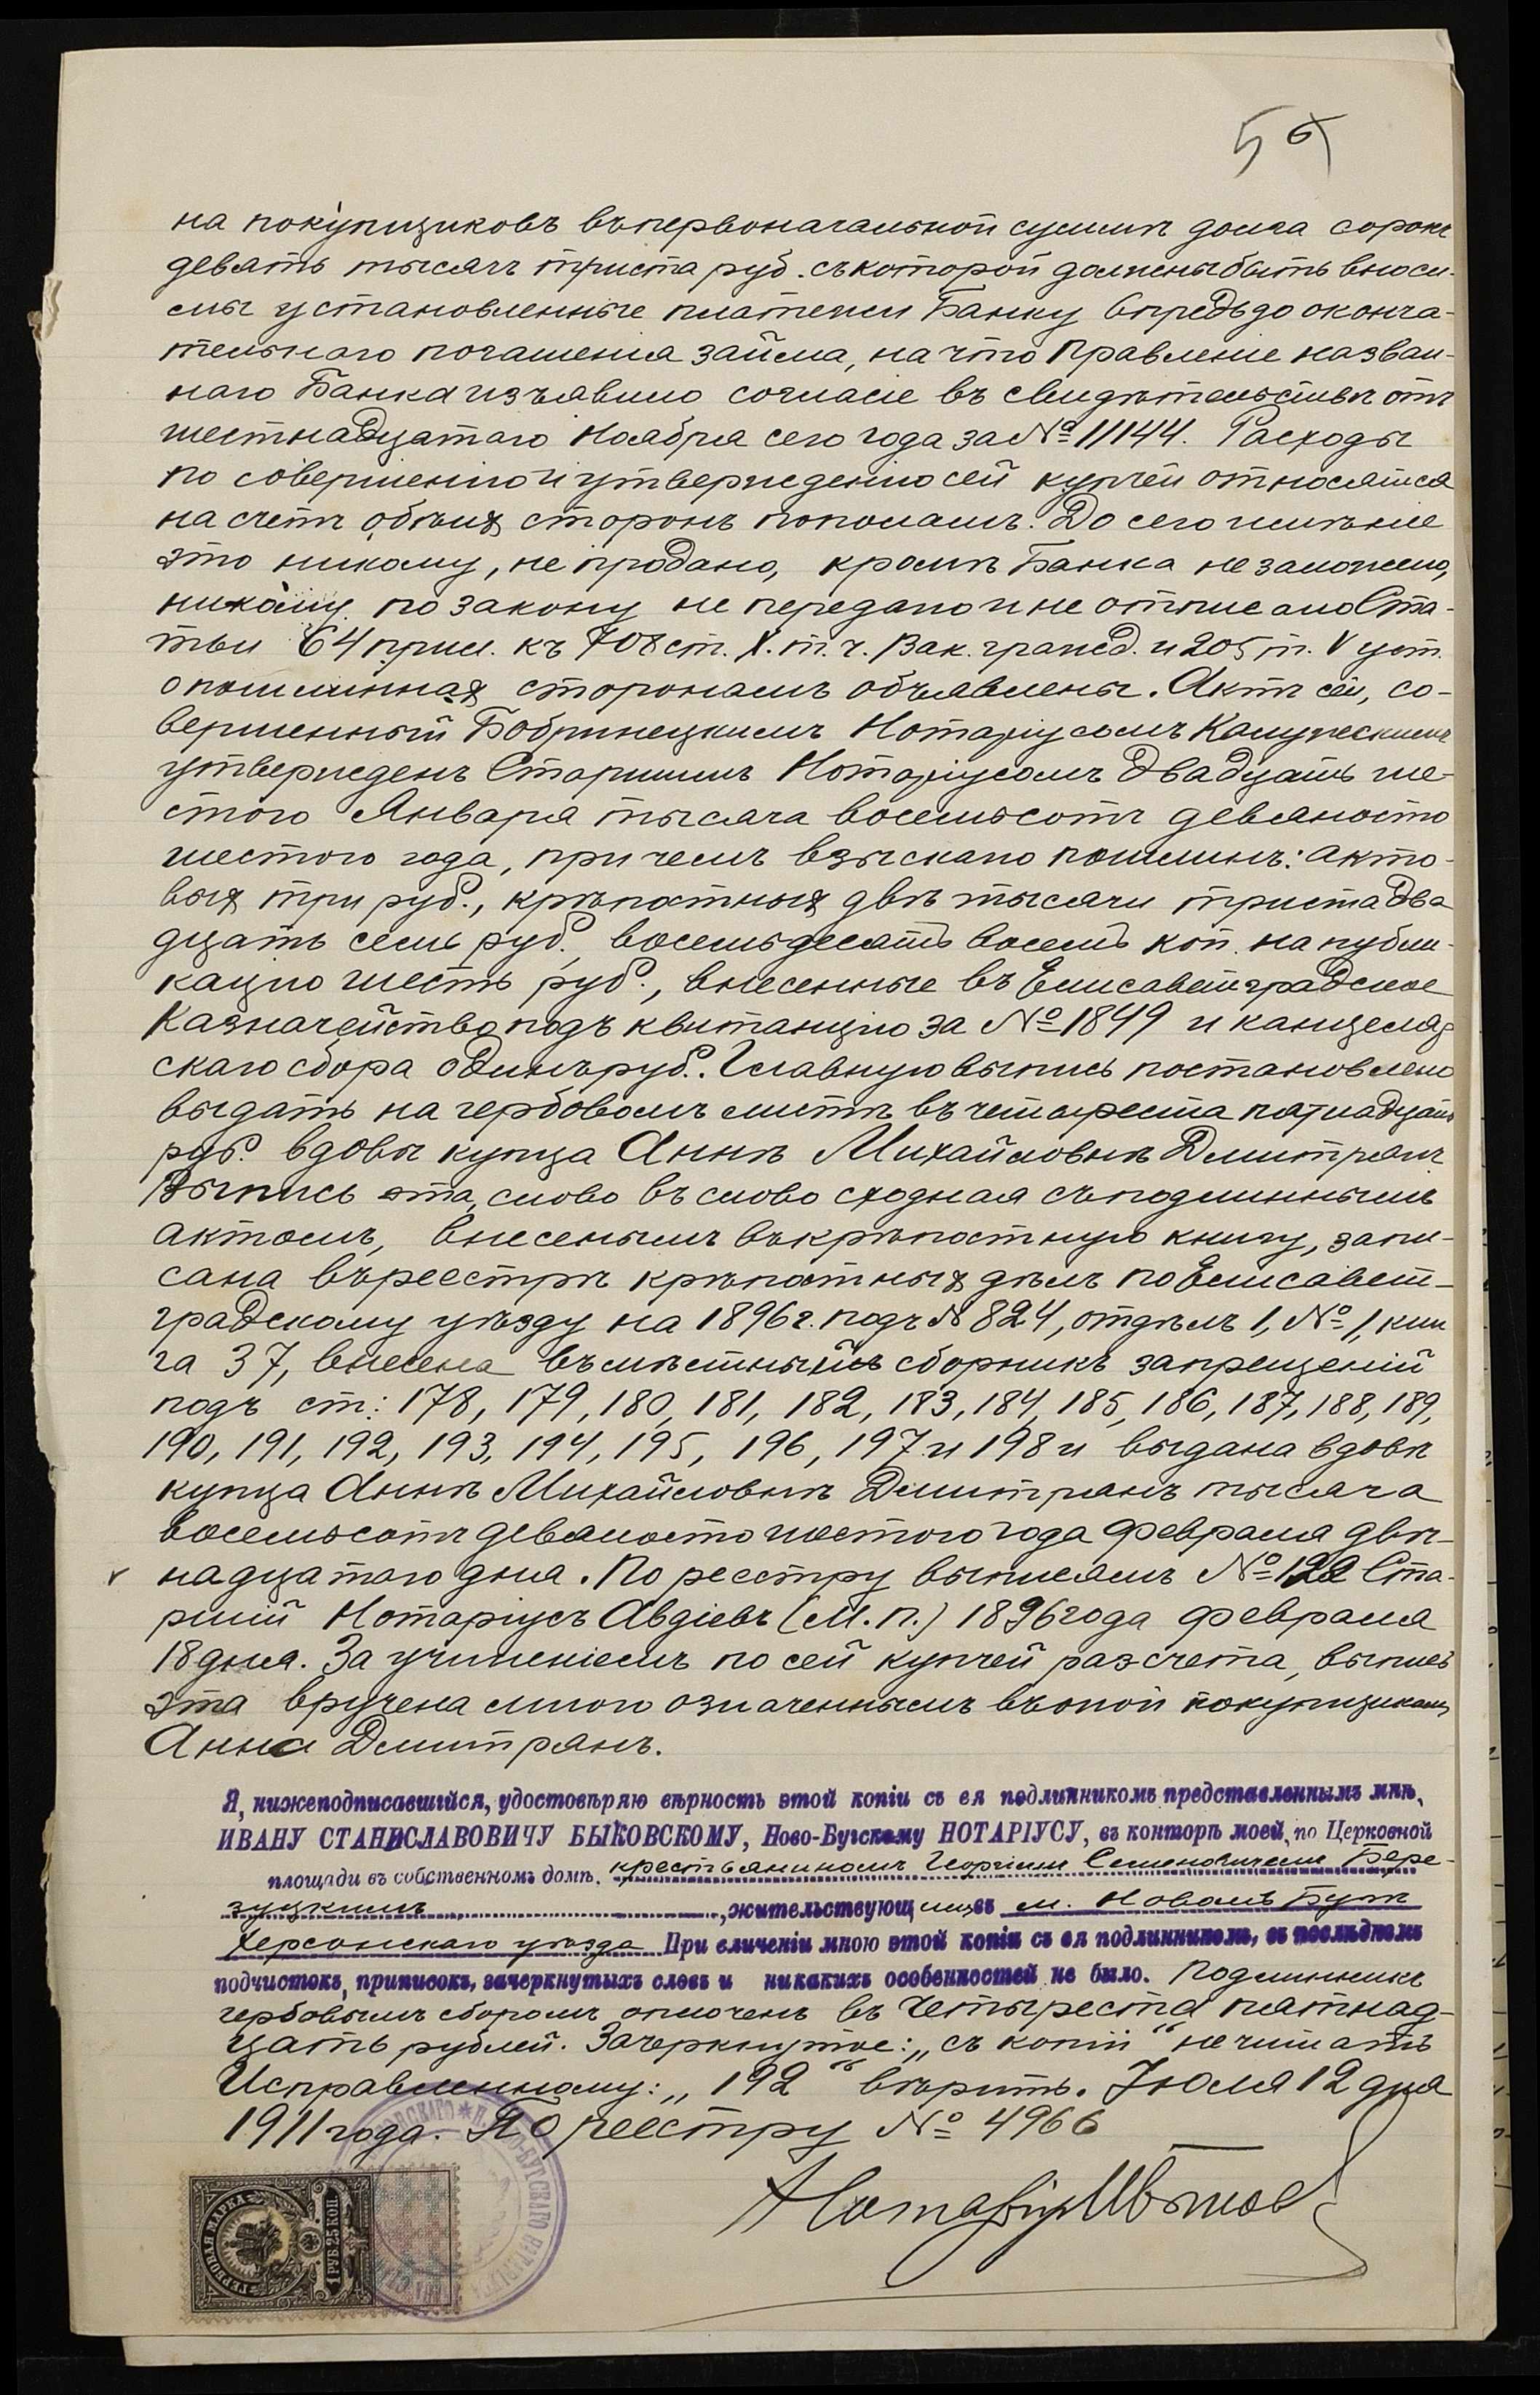 на покупщиковъ въ первоначальной суммѣ долга сорокъ
девять тысячъ триста руб. съ которой должны быть вноси-
мы установленные платежи Банку впредь до оконча-
тельнаго погашенія займа, на что Правленіе назван-
наго Банка изъявило согласіе въ свидѣтельствѣ отъ
шестнадцатаго Ноября сего года за № 11144. Расходы
по совершенію и утвержденію сей купчей относятся
на счетъ обѣихъ сторонъ пополамъ. До сего имѣніе
это никому, не продано, кромѣ Банка не заложено,
никому по закону не передано и не отписано Ста-
тьи 64 прим. къ 708 ст. X. т. ч. Зак. гражд. и 205 т. V уст.
о пошлинахъ сторонамъ объявлены. Актъ сей, со-
вершенный Бобринецкимъ Нотаріусомъ Калужскимъ
утвержденъ Старшимъ Нотаріусомъ двадцать ше-
стого Января тысяча восемьсотъ девяносто
шестого года, при чемъ взыскано пошлинъ: акто-
выя три руб., крѣпостныхъ двѣ тысячи триста два
дцать семь руб. восемьдесятъ восемь коп. на публи-
кацію шесть руб., внесенные въ Елисаветградское
Казначейство подъ квитанцію за № 1849 и канцеляр
скаго сбора одинъ руб. Главную выпись постановлено
выдать на гербовомъ листѣ въ четыреста пятнадцать
руб. вдовѣ купца Аннѣ Михайловнѣ Дмитрянъ
Выпись эта, слово въ слово сходная съ подлиннымъ
актомъ, внесенымъ въ крѣпостную книгу, запи-
сана въ реестрѣ крѣпостныхъ дѣлъ по Елисавет-
градскому уѣзду на 1896 г. подъ № 824, отдѣлъ 1, № 1, кни
га 37, внесена въ мѣстный сборникъ запрещеній
подъ ст: 178, 179, 180, 181, 182, 183, 184, 185, 186, 187, 188, 189,
190, 191, 192, 193, 194, 195, 196, 197 и 198 и выдана вдовѣ
купца Аннѣ Михайловнѣ Дмитрянъ тысяча
восемьсотъ девяносто шестого года февраля двѣ-
надцатаго дня. По реестру выписямъ № 192 Ста-
ршій Нотаріусъ Авдіевъ (М. П.) 1896 года февраля
18 дня. За учиненіемъ по сей купчей разсчета, выпись
эта вручена мною означеннымъ въ оной покупщикамъ
Анна Дмитрянъ.
Я, нижеподписавшійся, удостовѣряю вѣрность этой копіи съ ея подлинникомъ представленнымъ мнѣ,
ИВАНУ СТАНИСЛАВОВИЧУ БЫКОВСКОМУ, Ново-Бугскому НОТАРІУСУ, въ конторѣ моей, по Церковной
площади въ собственномъ домѣ, крестьяниномъ Георгіемъ Семеновичемъ Бере-
зуцкимъ, жительствующимъ въ м. Новомъ Бугѣ
Херсонскаго уѣзда При сличеніи мною этой копіи съ ея подлинникомъ, въ послѣднемъ
подчистокъ, приписокъ, зачеркнутыхъ словъ и никакихъ особенностей не было. Подлинникъ
гербовымъ сборомъ оплоченъ въ четыреста пятнад-
цать рублей. Зачеркнутое: „съ копіи“ не читать
Исправленному: „192“ вѣрить. Іюля 12 дня
1911 года. По реестру № 4966
Нотаріусъ
ГЕРБОВАЯ МАРКА
1 РУБ. 25 КОП.